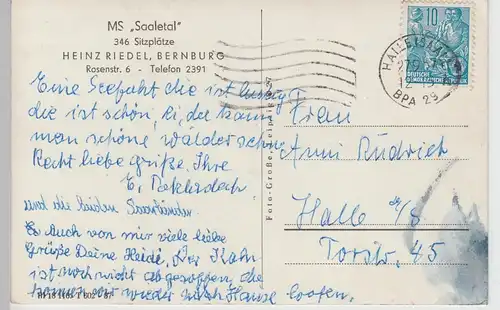 MS „Saaletal"
346 Sitzplätze
HEINZ RIEDEL, BERNBURG
Rosenstr. 6 - Telefon 2391
Eine Seefahrt die ist lustig
die ist schön, ei, da kann
man schöne wälder sehn
Recht liebe grüße. Ihre
und die beiden
Auch von mir viele liebe
Grüße Deine Heide. Der Kahn
ist noch nicht abgesoffen, da
können wir wieder nach Hause loofen.
Foto-Große, Leipzig
10
DEUTSCHE
DEMOKRATISCHE REPUBLIK
HALLE (SAALE)
BPA 29
Frau
Anni Rudrich
Halle a/S
Torstr. 45